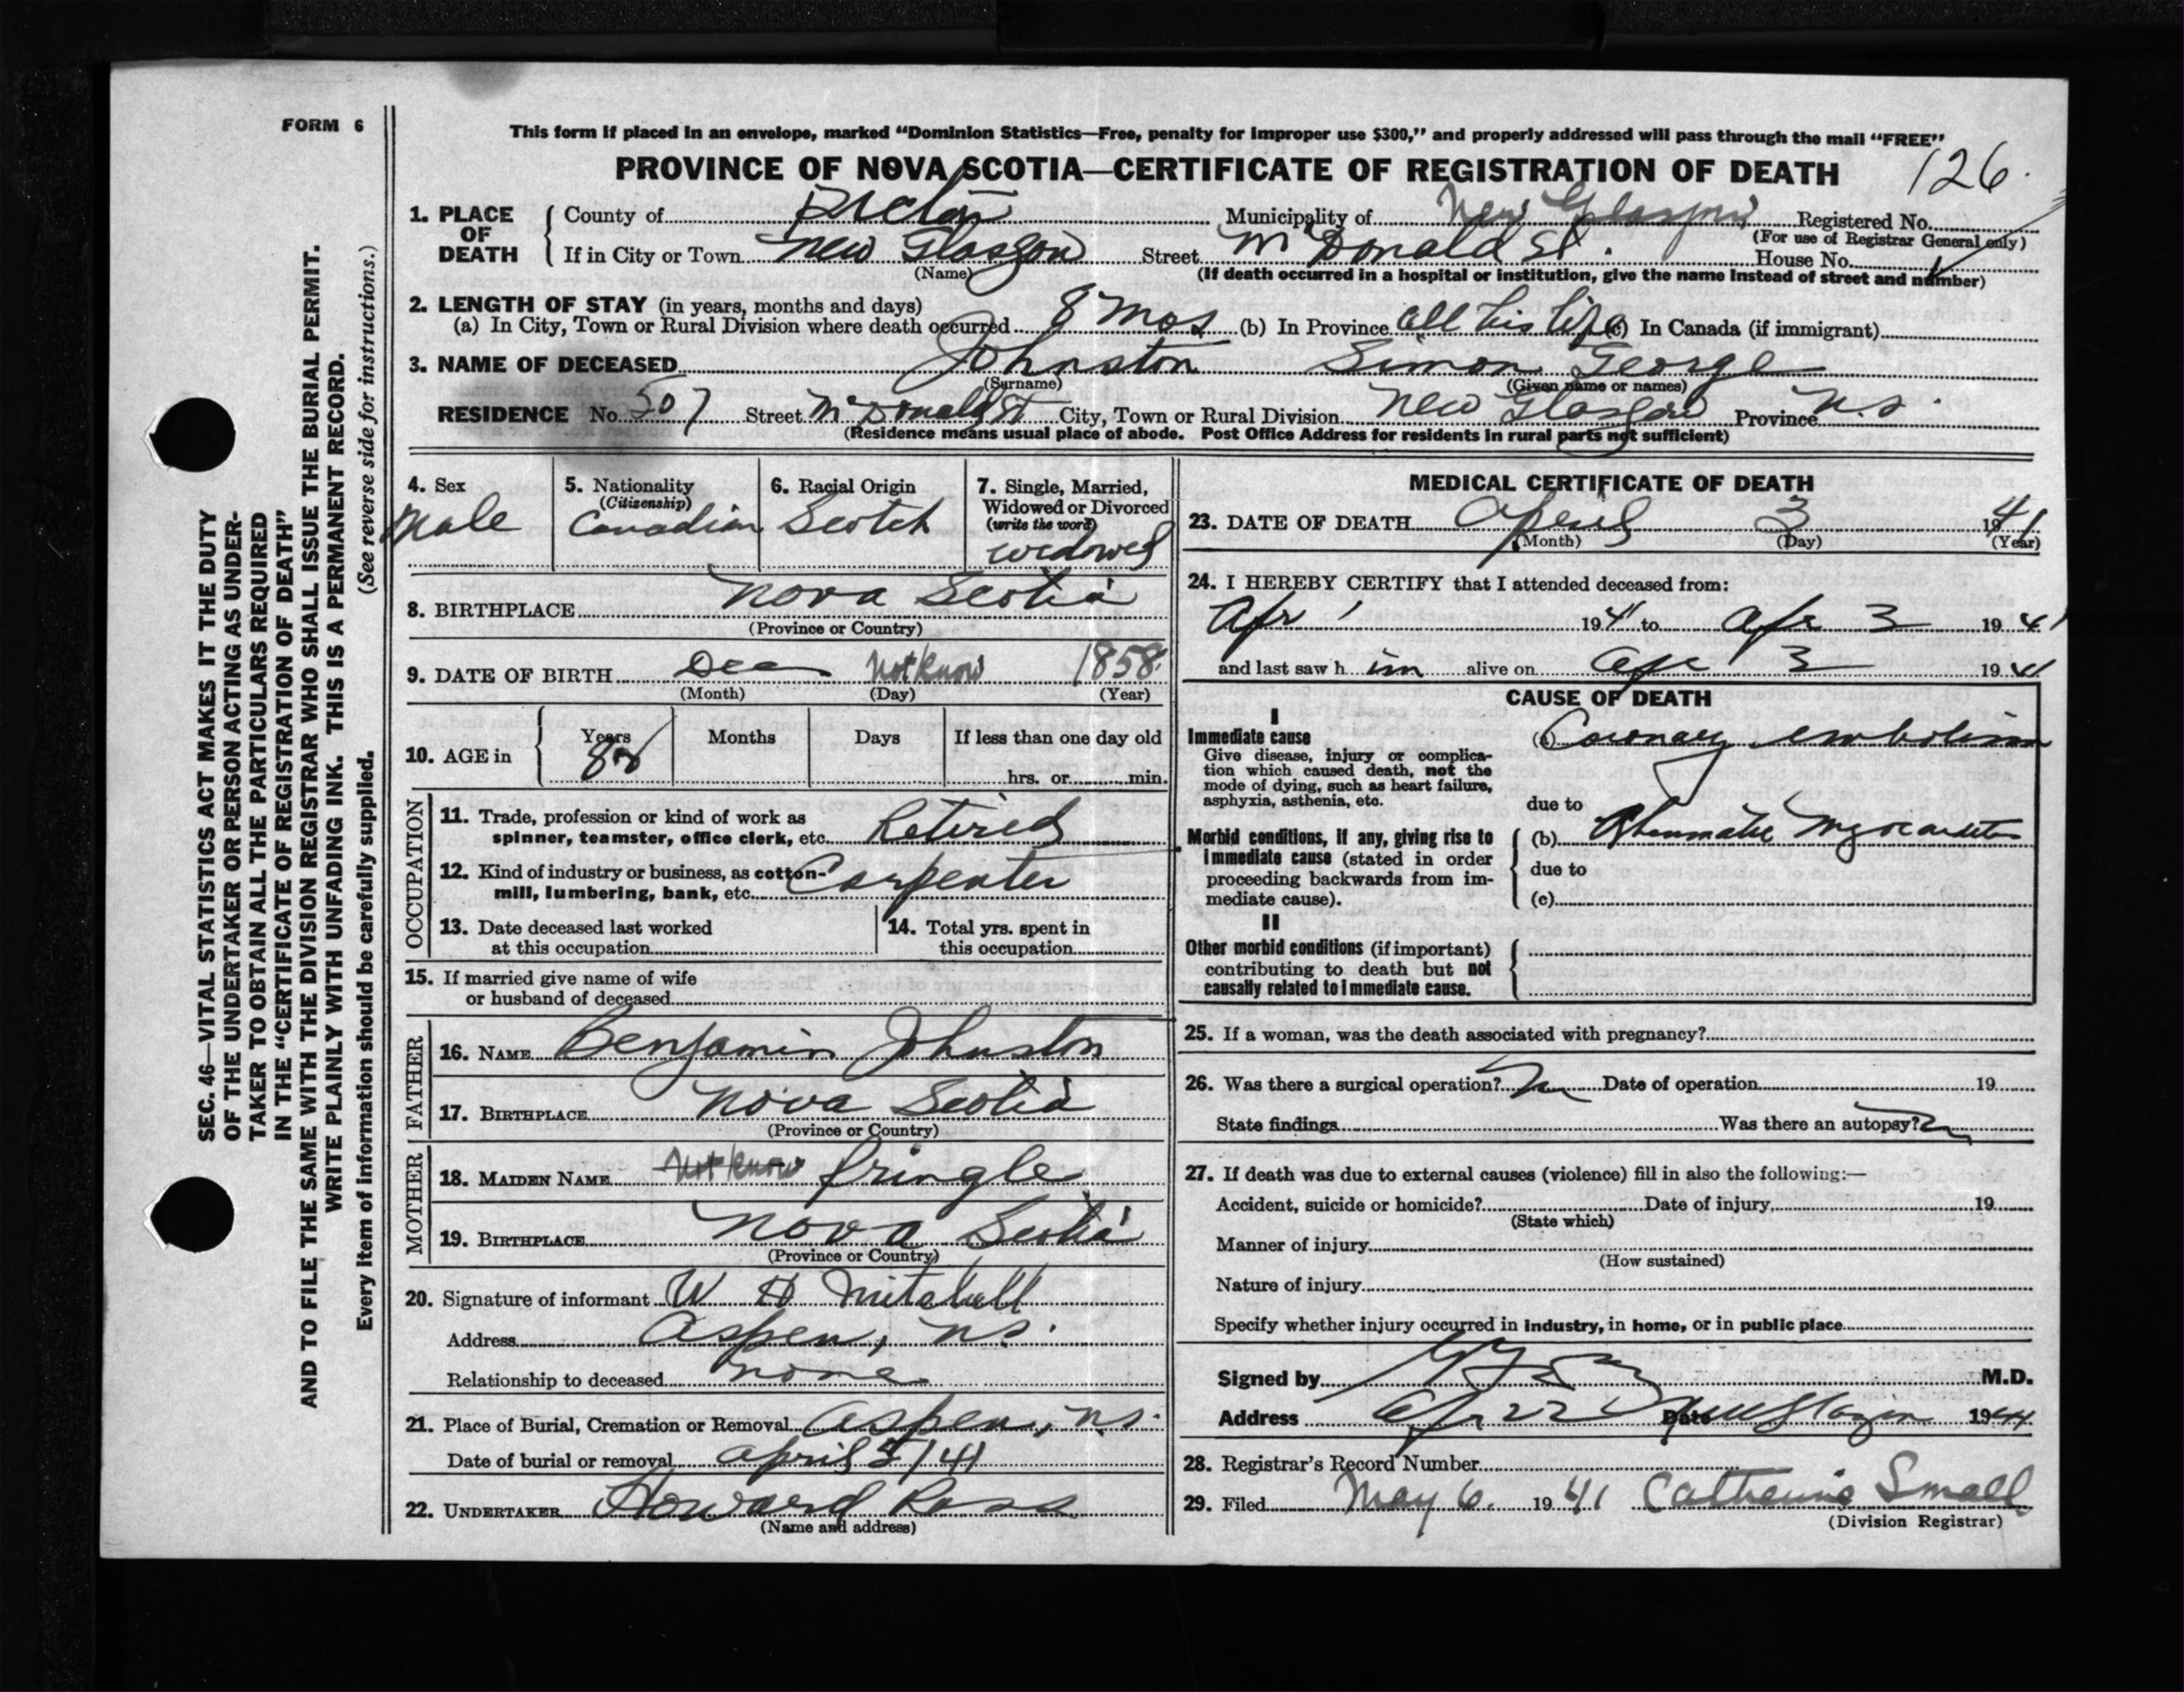 FORM 6
This form if placed in an envelope, marked “Dominion Statistics—Free, penalty for improper use $300,” and properly addressed will pass through the mail “FREE”
PROVINCE OF NOVA SCOTIA—CERTIFICATE OF REGISTRATION OF DEATH
126
1. PLACE OF DEATH
County of Pictou Municipality of New Glasgow Registered No.
(For use of Registrar General only)
If in City or Town New Glasgow Street McDonald St. House No.
(Name)
(If death occurred in a hospital or institution, give the name instead of street and number)
2. LENGTH OF STAY (in years, months and days)
(a) In City, Town or Rural Division where death occurred 8 mos (b) In Province all his life (c) In Canada (if immigrant)
3. NAME OF DECEASED Johnston Simon George
(Surname) (Given name or names)
RESIDENCE No. 507 Street McDonald St City, Town or Rural Division New Glasgow Province N.S.
(Residence means usual place of abode. Post Office Address for residents in rural parts not sufficient)
4. Sex
Male
5. Nationality
(Citizenship)
Canadian
6. Racial Origin
Scotch
7. Single, Married,
Widowed or Divorced
(write the word)
widowed
8. BIRTHPLACE Nova Scotia
(Province or Country)
9. DATE OF BIRTH Dec Not Know 1858
(Month) (Day) (Year)
10. AGE in
Years Months Days If less than one day old
hrs. or min.
OCCUPATION
11. Trade, profession or kind of work as
spinner, teamster, office clerk, etc. Retired
12. Kind of industry or business, as cotton-
mill, lumbering, bank, etc. Carpenter
13. Date deceased last worked
at this occupation
14. Total yrs. spent in
this occupation
15. If married give name of wife
or husband of deceased
FATHER
16. NAME Benjamin Johnston
17. BIRTHPLACE Nova Scotia
(Province or Country)
MOTHER
18. MAIDEN NAME Not Know Pringle
19. BIRTHPLACE Nova Scotia
(Province or Country)
20. Signature of informant W H Mitchell
Address Aspen, N.S.
Relationship to deceased none
21. Place of Burial, Cremation or Removal Aspen, N.S.
Date of burial or removal April 5/41
22. UNDERTAKER Howard Ross
(Name and address)
MEDICAL CERTIFICATE OF DEATH
23. DATE OF DEATH April 3 1941
(Month) (Day) (Year)
24. I HEREBY CERTIFY that I attended deceased from:
Apr 1 1941 to Apr 3 1941
and last saw him alive on Apr 3 1941
CAUSE OF DEATH
I
Immediate cause
Give disease, injury or complica-
tion which caused death, not the
mode of dying, such as heart failure,
asphyxia, asthenia, etc.
(a) Coronary embolism
due to
Morbid conditions, if any, giving rise to
immediate cause (stated in order
proceeding backwards from im-
mediate cause).
(b) Rheumatic Myocarditis
due to
(c)
II
Other morbid conditions (if important)
contributing to death but not
causally related to immediate cause.
25. If a woman, was the death associated with pregnancy?
26. Was there a surgical operation? No Date of operation 19
State findings Was there an autopsy? No
27. If death was due to external causes (violence) fill in also the following:—
Accident, suicide or homicide? Date of injury 19
(State which)
Manner of injury
(How sustained)
Nature of injury
Specify whether injury occurred in industry, in home, or in public place
Signed by M.D.
Address Apr 22 Date New Glasgow 1944
28. Registrar's Record Number
29. Filed May 6 1941 Catherine Small
(Division Registrar)
SEC. 46—VITAL STATISTICS ACT MAKES IT THE DUTY
OF THE UNDERTAKER OR PERSON ACTING AS UNDER-
TAKER TO OBTAIN ALL THE PARTICULARS REQUIRED
IN THE “CERTIFICATE OF REGISTRATION OF DEATH”
AND TO FILE THE SAME WITH THE DIVISION REGISTRAR WHO SHALL ISSUE THE BURIAL PERMIT.
WRITE PLAINLY WITH UNFADING INK. THIS IS A PERMANENT RECORD.
Every item of information should be carefully supplied. (See reverse side for instructions.)